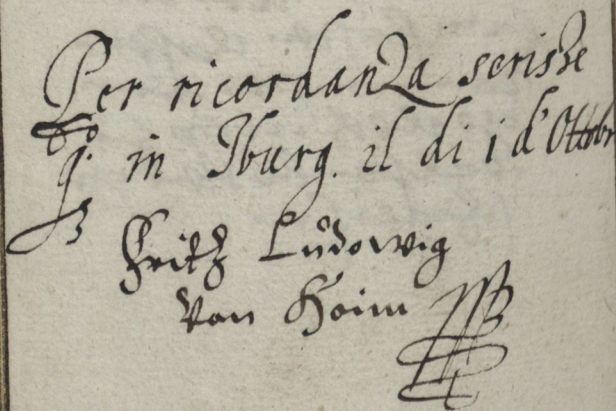 Per ricordanza scrisse
qo in Iburg. il di 1 d'Ottobr
Fritz Ludowig
Von Hoim